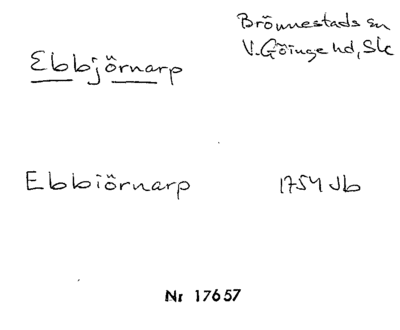 Brönnestads sn
Ebbjörnarp V. Göinge hd, Sk
Ebbiörnarp 1754 Jb
Nr 17657